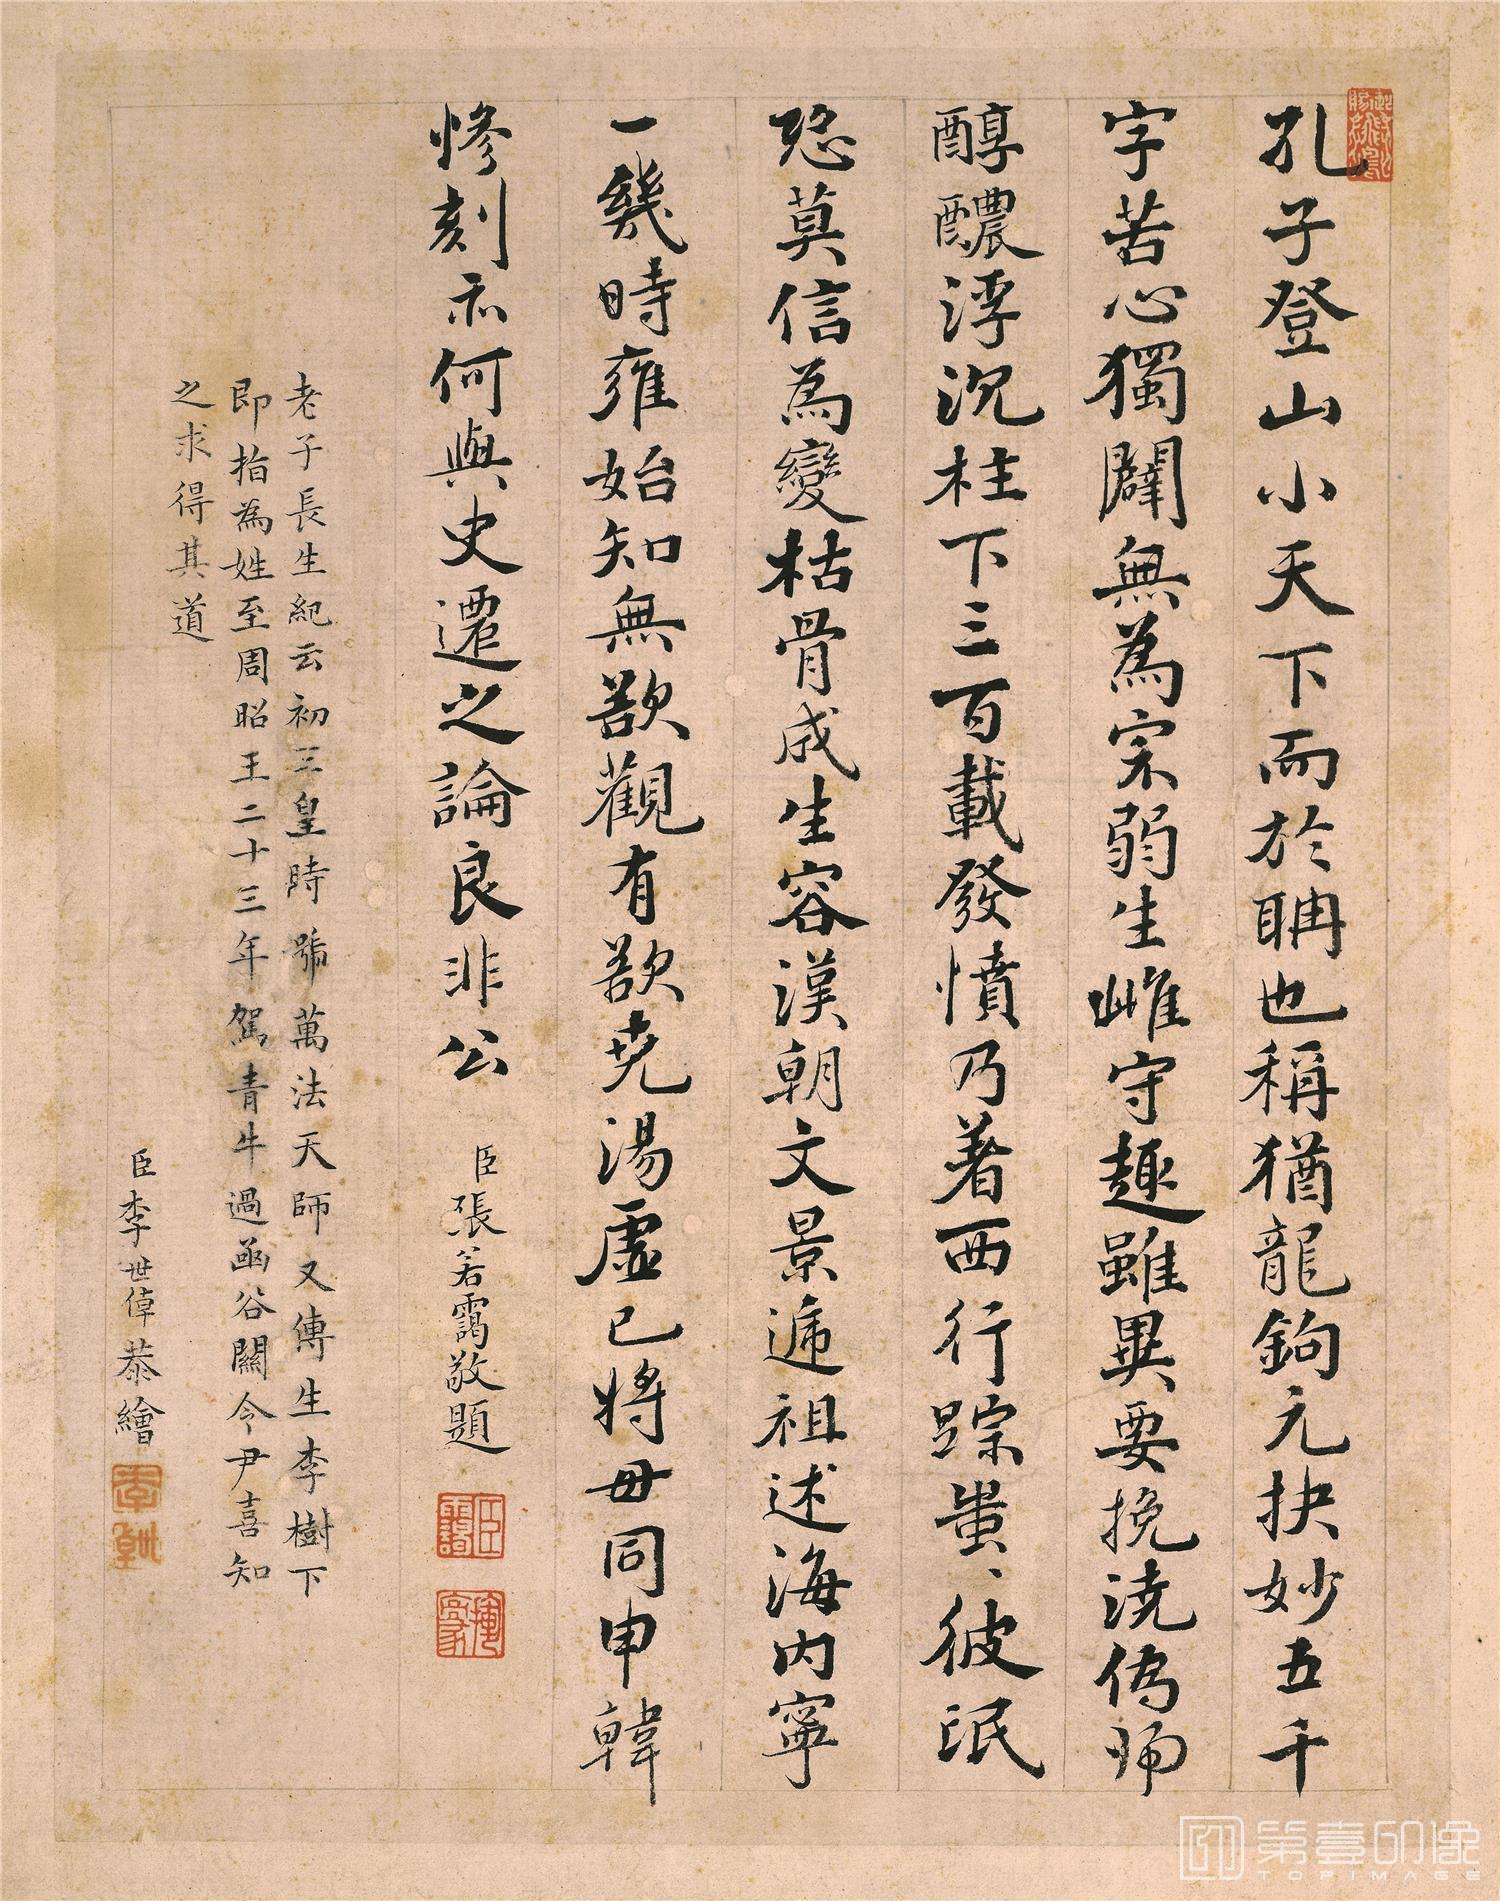 孔子登山小天下而於聃也稱猶龍鉤元抉妙五千
字苦心獨闢無為宗弱生雌守趣雖異要挽澆偽师
醇醲浮沉柱下三百載發憤乃著西行踪蚩、彼氓
恐莫信為變枯骨成生容漢朝文景遞祖述海内寧
一幾時雍始知無欲觀有欲尭湯虛已將毋同申韓
慘刻亦何與史遷之論良非公
臣張若靄敬題
老子長生紀云初三皇時號萬法天師又傳生李樹下
即指為姓至周昭王二十三年駕青牛過函谷關令尹喜知
之求得其道
臣李世倬恭繪
第壹印像
TOPIMAGE